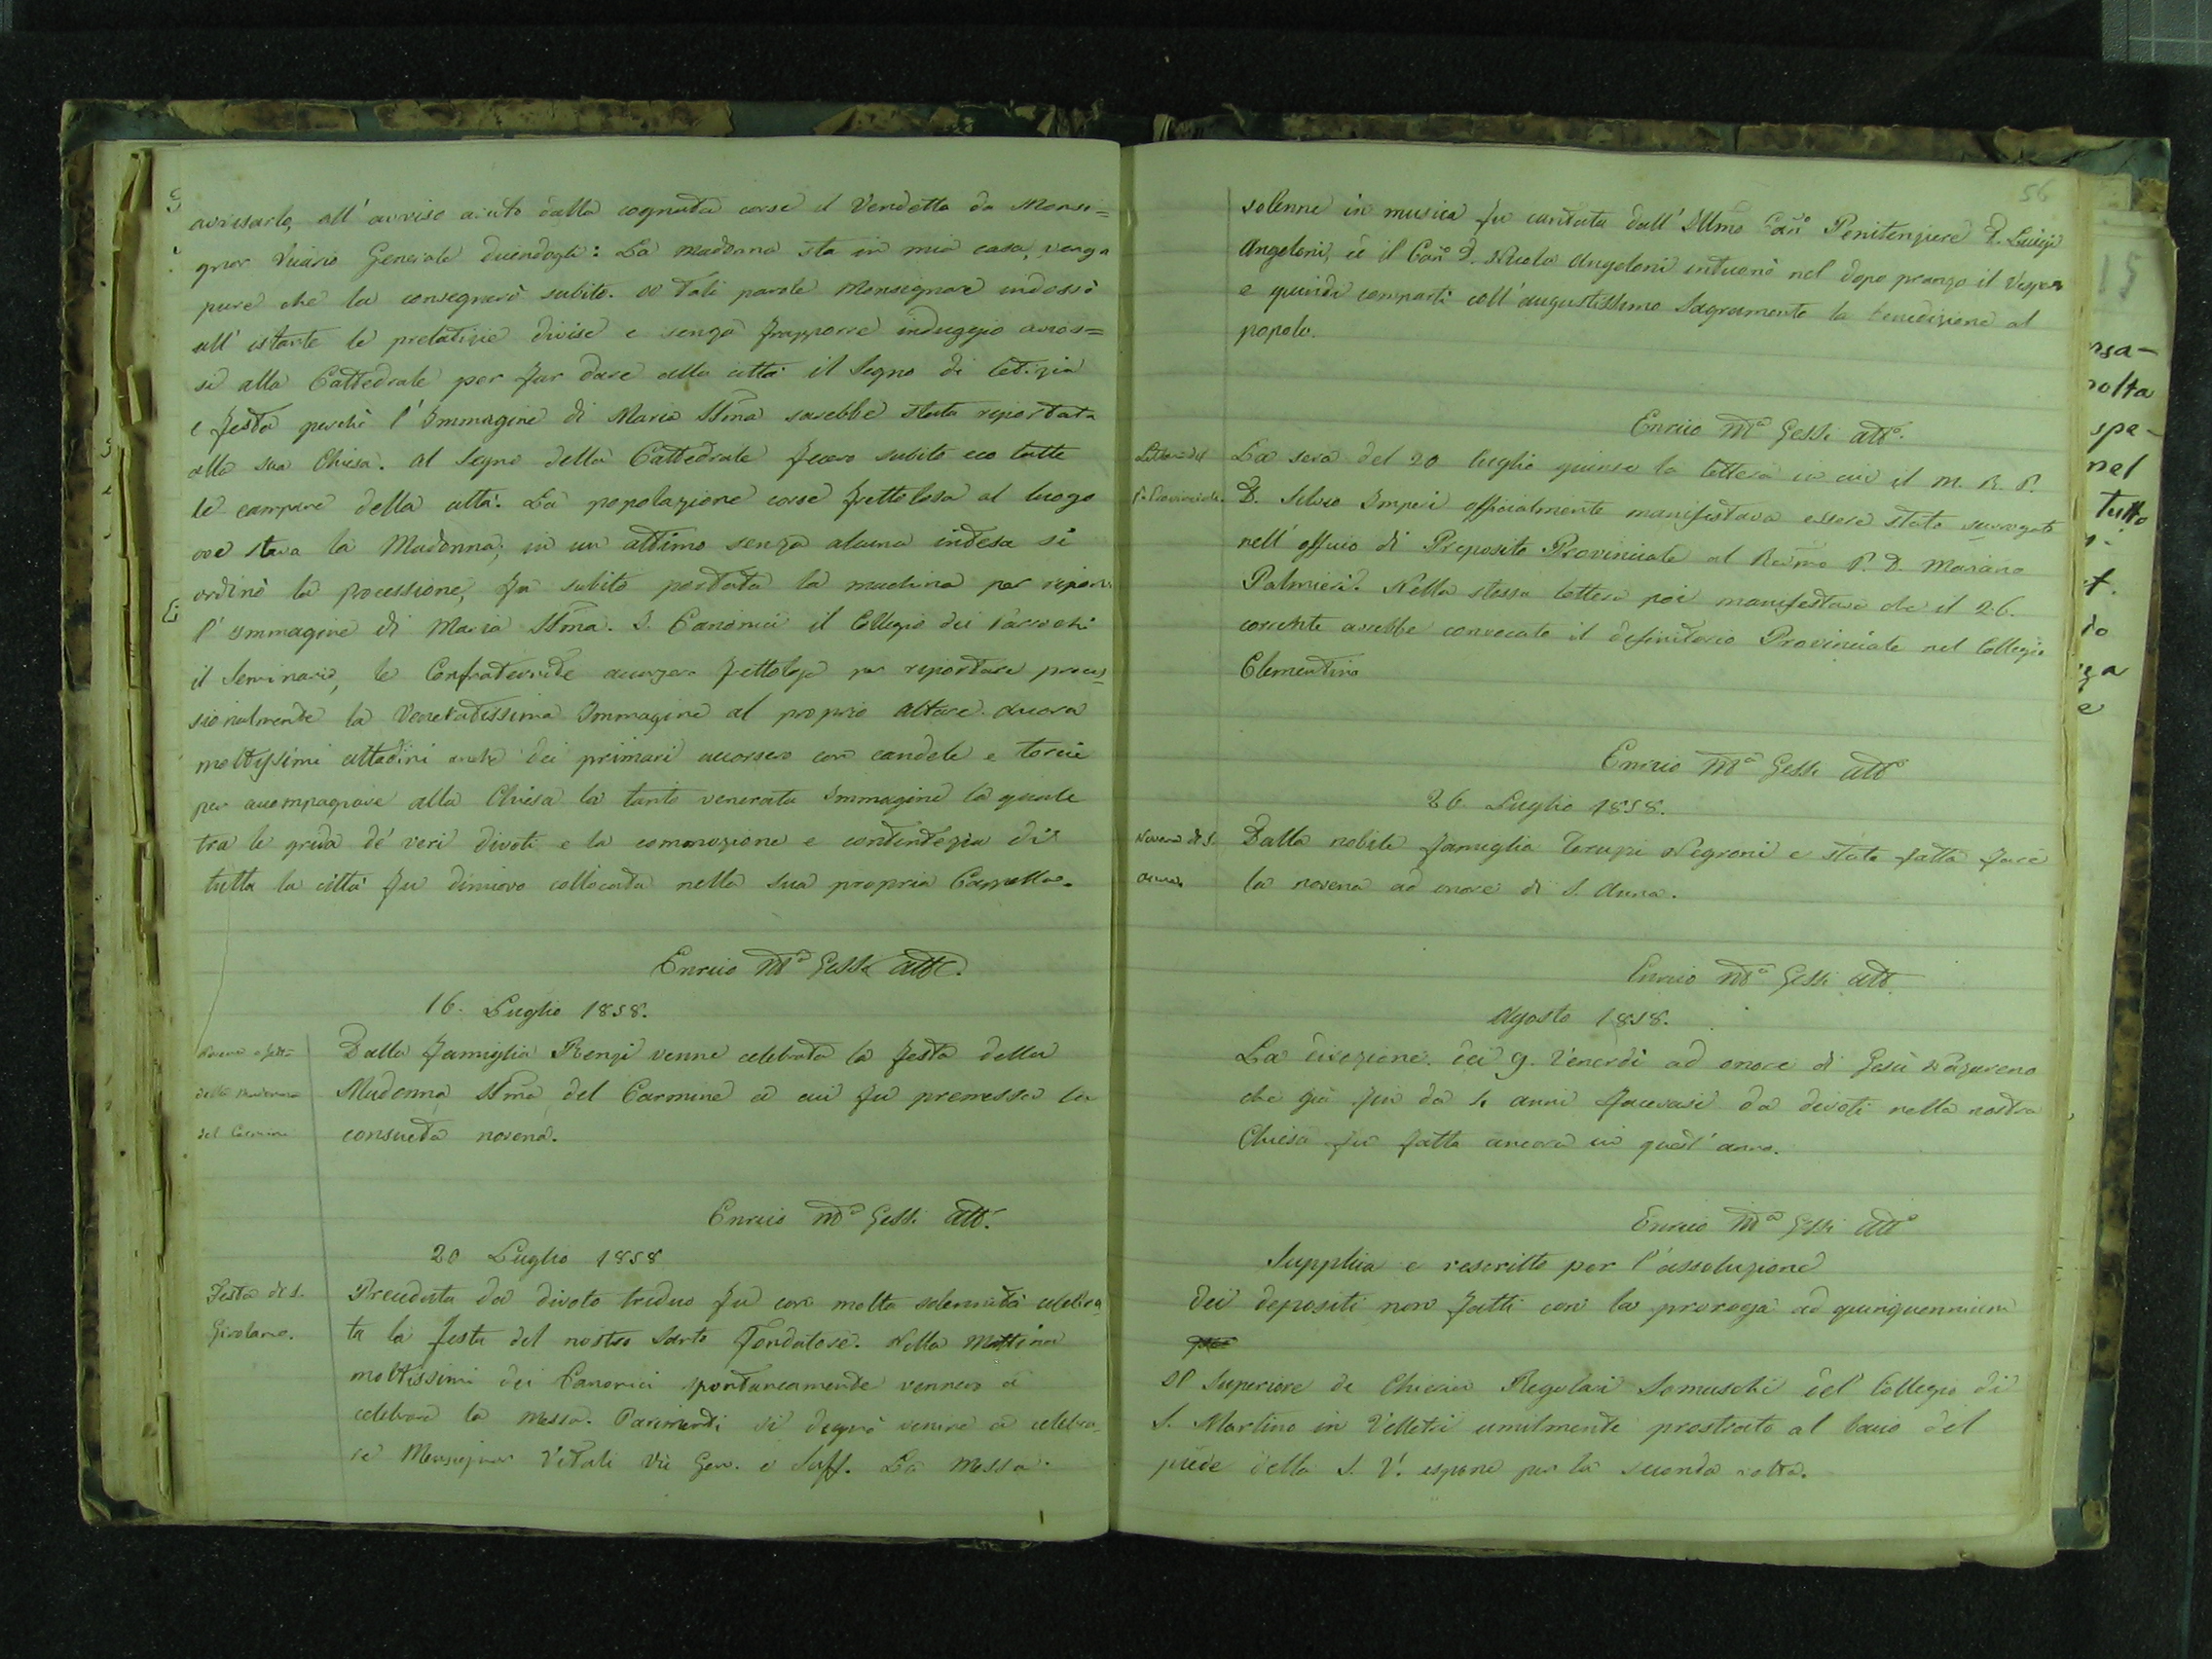 avvisarlo, all'avviso avuto dalla cognata corse il Vendetta da Monsi=
gnor Vicario Generale dicendogli: La madonna sta in mia casa, venga
pure che la consegnerò subito. A tali parole Monsignore indossò
all'istante le prelatizie divise e senza frapporre induggio avvios=
si alla Cattedrale per far dare alla città il segno di letizia
e festa perchè l'Immagine di Maria SSma sarebbe stata riportata
alla sua Chiesa. Al segno della Cattedrale fecero subito eco tutte
le campane della città. La popolazione corse frettolosa al luogo
ove stava la Madonna; in un attimo senza alcuna intesa si
ordinò la processione, fu subito portata la machina per riporvi
l'Immagine di Maria SSma. I Canonici il Collegio dei Parrochi
il Seminario, le Confraternite accorsero frettolose per riportare proces=
sionalmente la Veneratissima Immagine al proprio altare. Ancora
moltissimi cittadini anche dei primari accorsero con candele e torcie
per accompagnare alla Chiesa la tanto venerata Immagine la quale
tra le grida de' veri divoti e la commozione e contentezza di
tutta la città fu dinuovo collocata nella sua propria Cappella.
Enrico Ma Gessi Atto.
16. Luglio 1858.
Novena e festa
della Madonna
del Carmine
Dalla famiglia Renzi venne celebrata la festa della
Madonna SSma del Carmine a cui fu premessa la
consueta novena.
Enrico Ma Gessi Atto.
20 Luglio 1858
Festa di S.
Girolamo.
Preceduta da divoto triduo fu con molta solennità celebra=
ta la festa del nostro Santo Fondatore. Nella Mattina
moltissimi dei Canonici spontaneamente vennero a
celebrare la messa. Parimenti si degnò venire a celebra=
re Monsignor Vitali Vic Gen. e Suff. La Messa
56
solenne in musica fu cantata dall'Illmo Canco Penitenziere D. Luigi
Angeloni, e il Canco D. Nicola Angeloni intuonò nel dopo pranzo il Vespero
e quindi compartì coll'augustissimo Sagramento la benedizione al
popolo.
Enrico Ma Gessi Atto.
Lettera del
P. Provinciale.
La sera del 20 luglio giunse la lettera in cui il M. R. P.
D. Silvio Imperi officialmente manifestava essere stato surrogato
nell'officio di Preposito Provinciale al Revmo P. D. Mariano
Palmieri. Nella stessa lettera poi manifestava che il 26.
corrente avrebbe convocato il definitorio Provinciale nel Collegio
Clementino
Enrico Ma Gessi Atto
26 Luglio 1858.
Novena di S.
Anna.
Dalla nobile famiglia Terupi Negroni e stata fatta fare
la novena ad onore di S. Anna.
Enrico Ma Gessi Atto
Agosto 1858.
La divozione dei 9. Venerdì ad onore di Gesù Nazareno
che già fin da anni facevasi da divoti nella nostra
Chiesa fu fatta ancora in quest'anno.
Enrico Ma Gessi Atto
Supplica e rescritto per l'assoluzione
dei depositi non fatti con la proroga ad quinquennium
Il Superiore de Chierici Regolari Somaschi del Collegio di
S. Martino in Velletri umilmente prostrato al bacio del
piede della S. V. espone per la seconda volta.